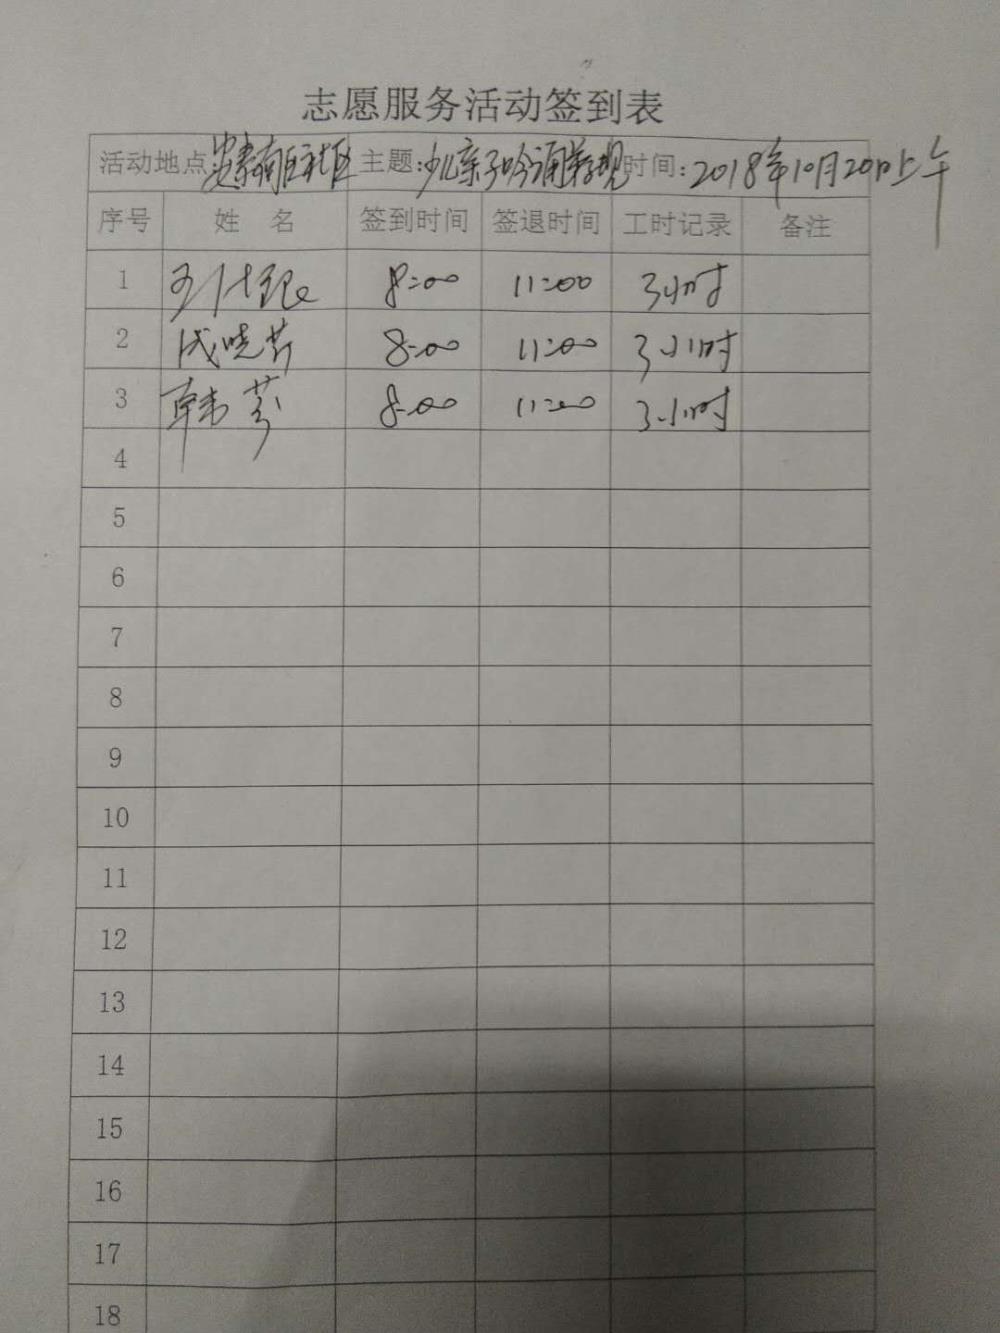 志愿服务活动签到表
活动地点 南区社区 主题:少儿亲子吟诵 时间:2018年10月20日上午
序号 姓 名 签到时间 签退时间 工时记录 备注
1 8:00 11:00 3小时
2 成晓芹 8:00 11:00 3小时
3 韩芬 8:00 11:00 3小时
4
5
6
7
8
9
10
11
12
13
14
15
16
17
18